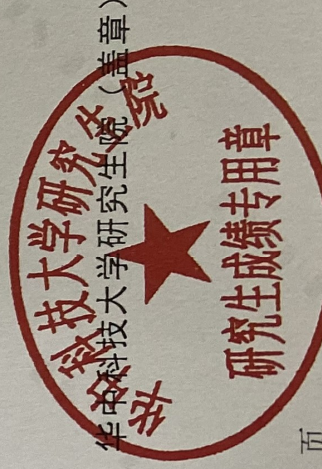 华中科技大学研究生院
华中科技大学研究生院（盖章）
研究生成绩专用章
页